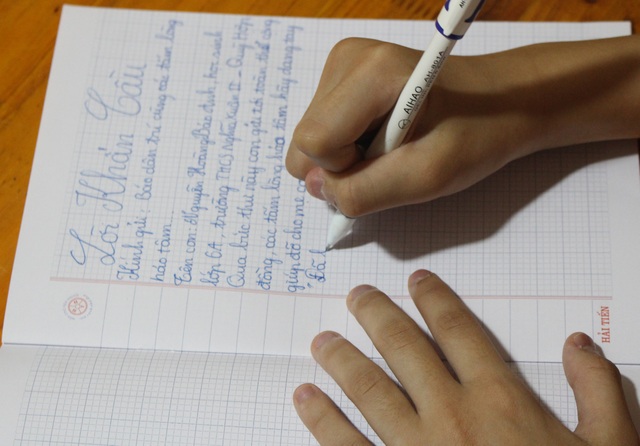 Lời Khẩn Cầu
Kính gửi: Báo dân trí cùng các tấm lòng
hảo tâm
Tên con: Nguyễn Hoàng học sinh
lớp 6A trường THCS Nghĩa Xuân II - Quỳ Hợp
Qua bức thư này con gửi tới toàn thể cộng
đồng, các tấm lòng hảo tâm hãy dang tay
giúp đỡ cho mẹ
AIHAO
HẢI TIẾN